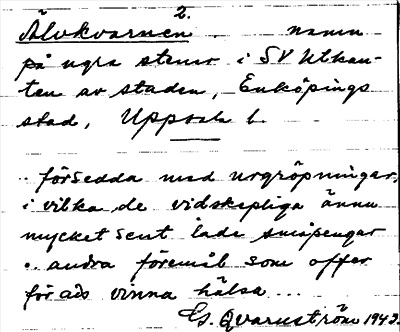 2.
Älvkvarnen namn
på ngra stenar i SV Utkan-
ten av staden, Enköpings
stad, Uppsala l.
.. försedda med urgröpningar,
i vilka de vidskepliga ännu
mycket sent lade småpengar
o. andra föremål som offer
för att vinna hälsa ...
G. Qvarnström 1943.